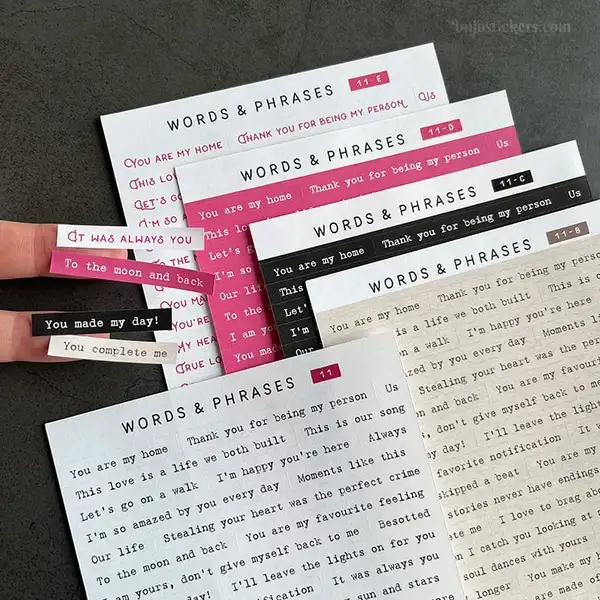 bujostickers.com
WORDS & PHRASES 11-E
You are my home Thank you for being my person Us
This lo
Let's g
I'm so a
You ma
My hea
True lo
WORDS & PHRASES 11-D
You are my home Thank you for being my person Us
This love
Let's
I'm so
Our lif
To the
I am yo
You made
WORDS & PHRASES 11-C
You are my home Thank you for being my person Us
This
Let's
I'm
Our
WORDS & PHRASES 11-B
You are my home Thank you for being my person
This love is a life we both built This is o
on a walk I'm happy you're here
amazed by you every day Moments li
Stealing your heart was the per
and back You are my favourite
s, don't give myself back to me
day! I'll leave the light
favorite notification It w
skipped a beat You are my
stories never have endings
ete me I love to brag abo
n I catch you looking at
soul dances with yours
longer You make my
are made of
It was always you
To the moon and back
You made my day!
You complete me
WORDS & PHRASES 11
You are my home Thank you for being my person Us
This love is a life we both built This is our song
Let's go on a walk I'm happy you're here Always
I'm so amazed by you every day Moments like this
Our life Stealing your heart was the perfect crime
To the moon and back You are my favourite feeling
I am yours, don't give myself back to me Besotted
made my day! I'll leave the lights on for you
favorite notification It was always you
sun and stars